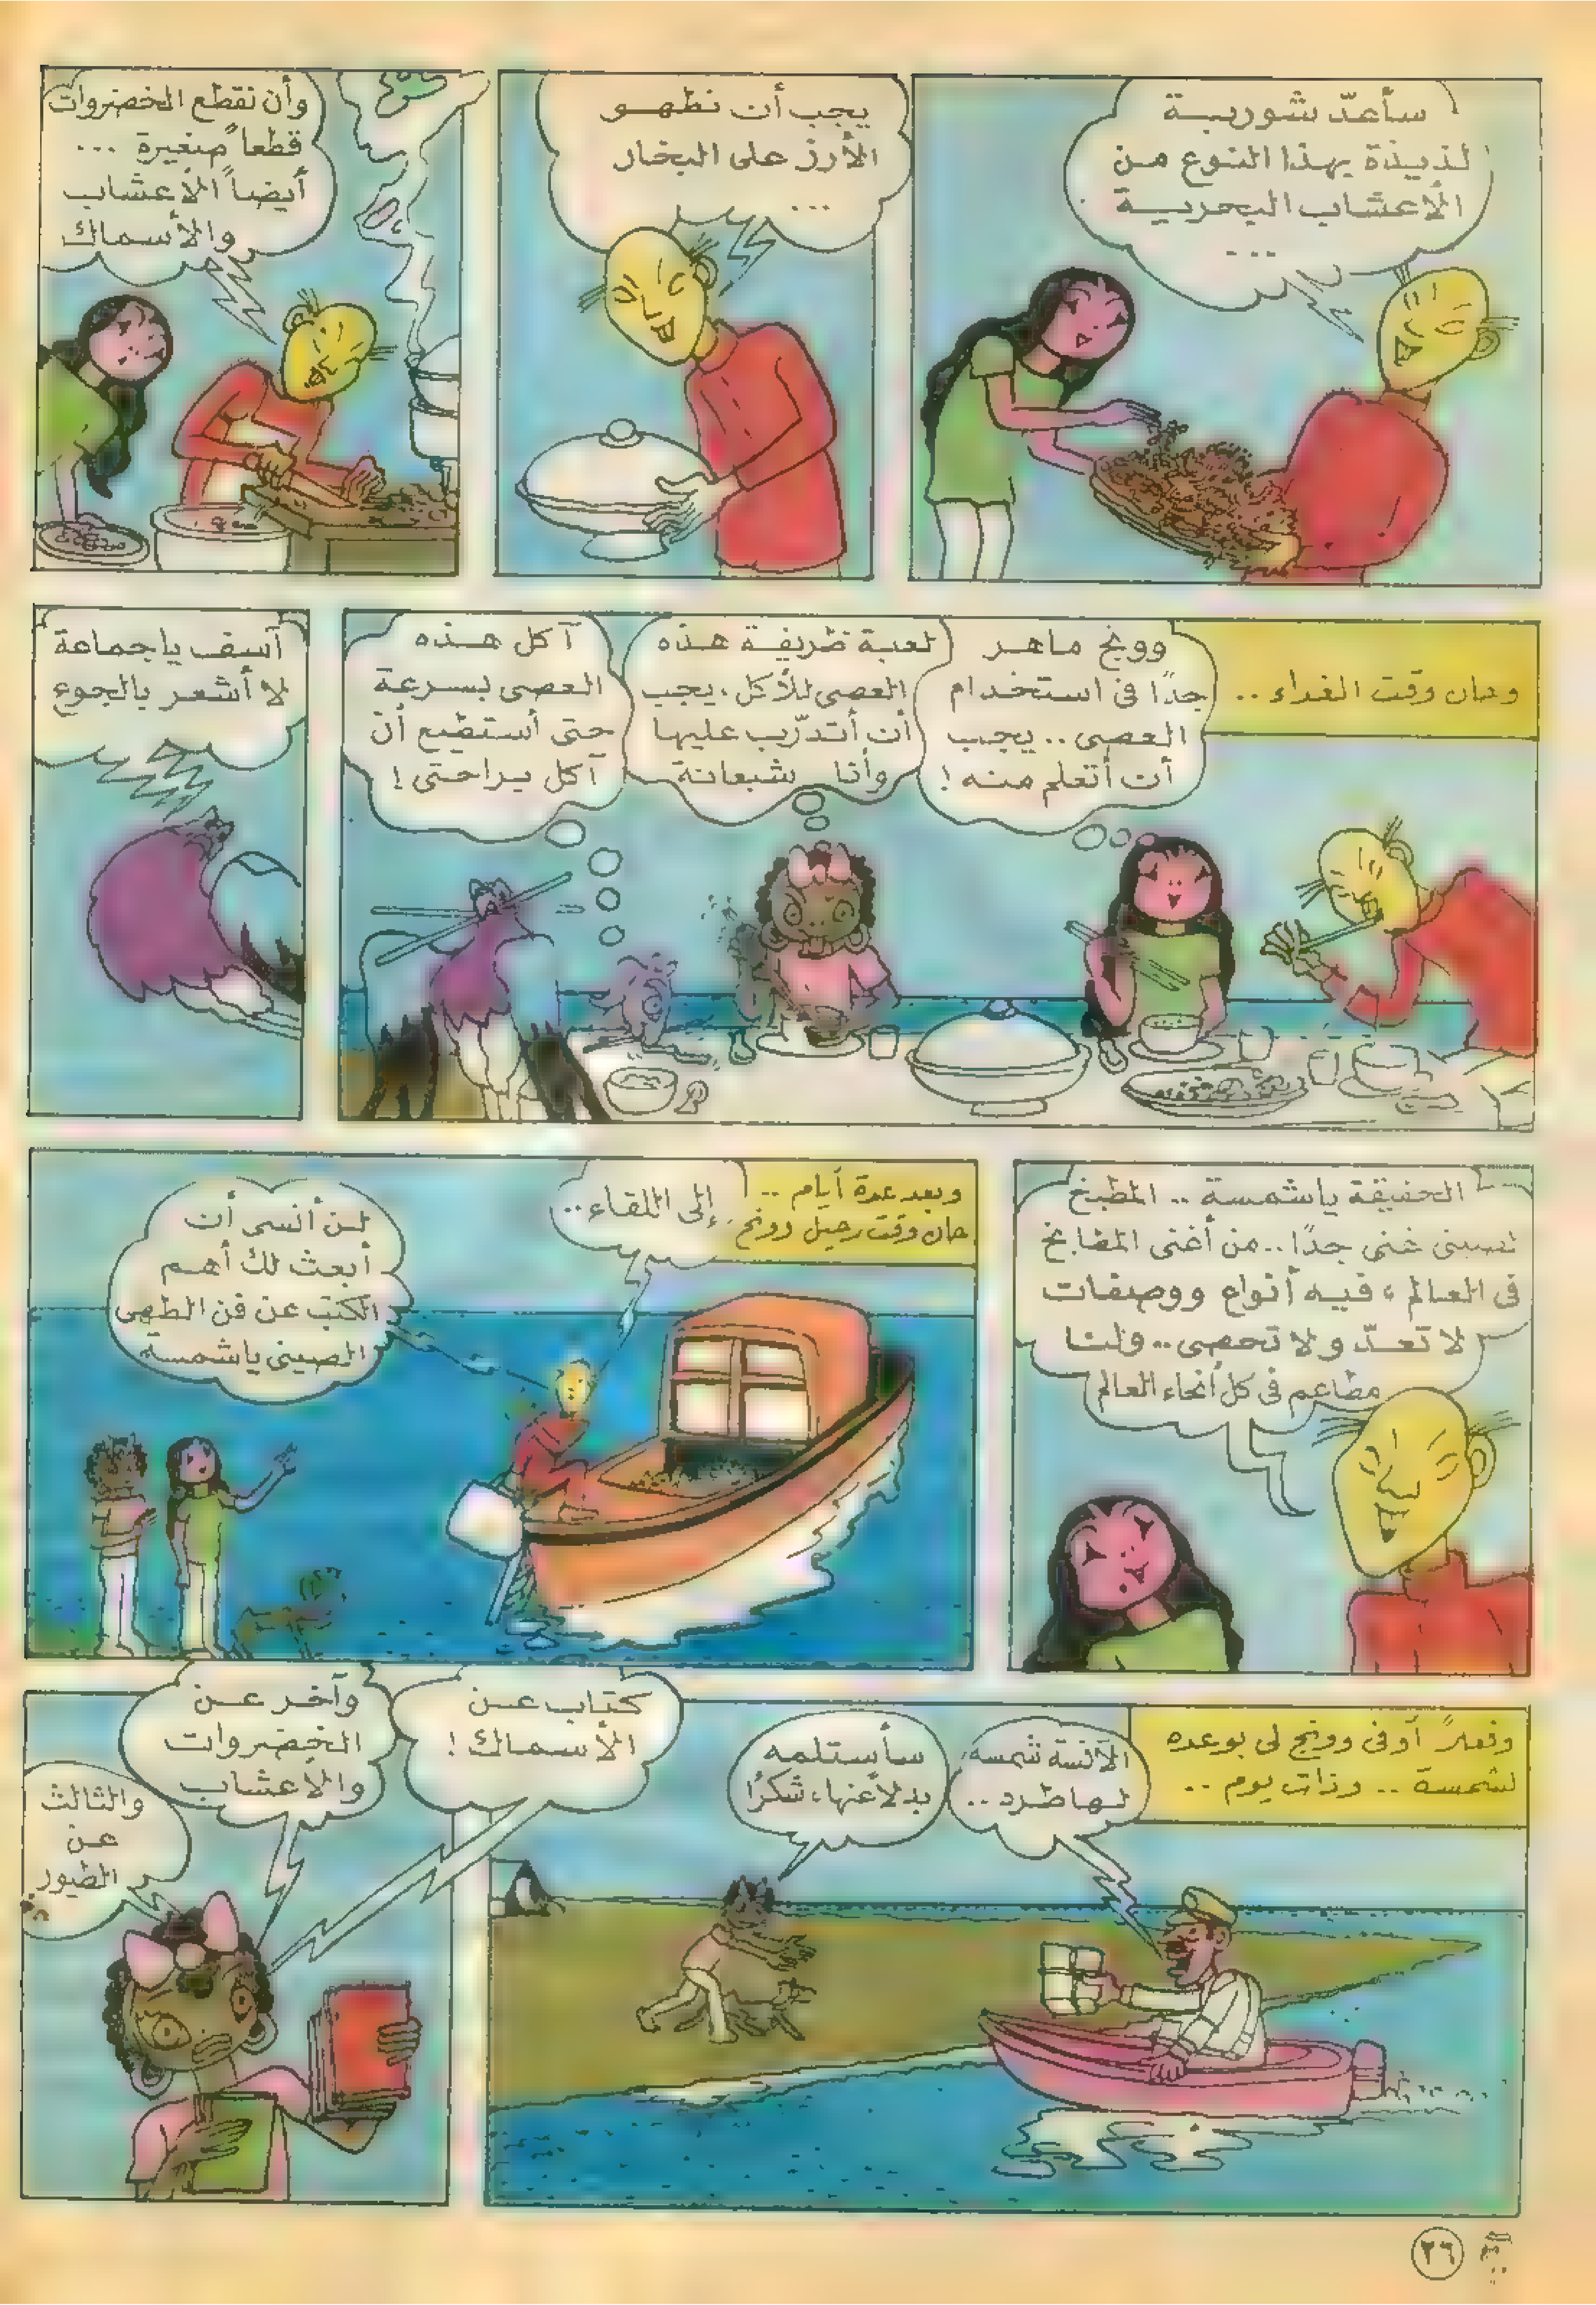 سأعدّ شوربة
لذيذة بهذا النوع من
الأعشاب البحرية
...
يجب أن نطهو
الأرز على البخار
...
وأن نقطع الخضروات
قطعاً صغيرة ...
أيضاً الأعشاب
والأسماك
وحان وقت الغداء ..
وونج ماهر
جدًا فى استخدام
العصى .. يجب
أن أتعلم منه !
لعبة ظريفة هذه
العصى للأكل، يجب
أن أتدرّب عليها
وأنا شبعانة
آكل هذه
العصى بسرعة
حتى أستطيع أن
آكل براحتى !
آسف ياجماعة
لا أشعر بالجوع
الحقيقة ياشمسة .. المطبخ
الصينى غنى جدًا .. من أغنى المطابخ
فى العالم، فيه أنواع ووصفات
لا تعدّ ولا تحصى .. ولنا
مطاعم فى كل أنحاء العالم
وبعد عدة أيام ..
حان وقت رحيل وونج
إلى اللقاء ..
لن أنسى أن
أبعث لك أهم
الكتب عن فن الطهى
الصينى ياشمسة
وفعلاً أوفى وونج لى بوعده
لشمسة .. وذات يوم ..
الآنسة شمسة
لها طرد ..
سأستلمه
بدلاً عنها، شكرًا
كتاب عن
الأسماك !
وآخر عن
الخضروات
والاعشاب
والثالث
عن
الطيور
٢٦